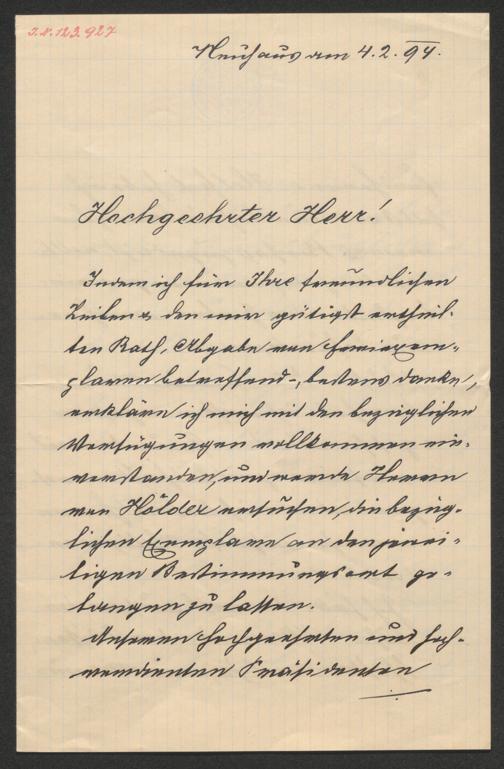 J.N. 123.927
Neuhaus am 4.2.94.
Hochgeehrter Herr!
Indem ich für Ihre freundlichen
Zeilen & den mir gütigst ertheil-
ten Rath, Abgabe von Freiexem-
plaren betreffend, bestens danke,
erkläre ich mich mit den bezüglichen
Verfügungen vollkommen ein-
verstanden, und werde Herrn
von Hölder ersuchen, die bezüg-
lichen Exemplare an den jewei-
ligen Bestimmungsort ge-
langen zu lassen.
Unseren hochgeehrten und hoch-
verdienten Präsidenten